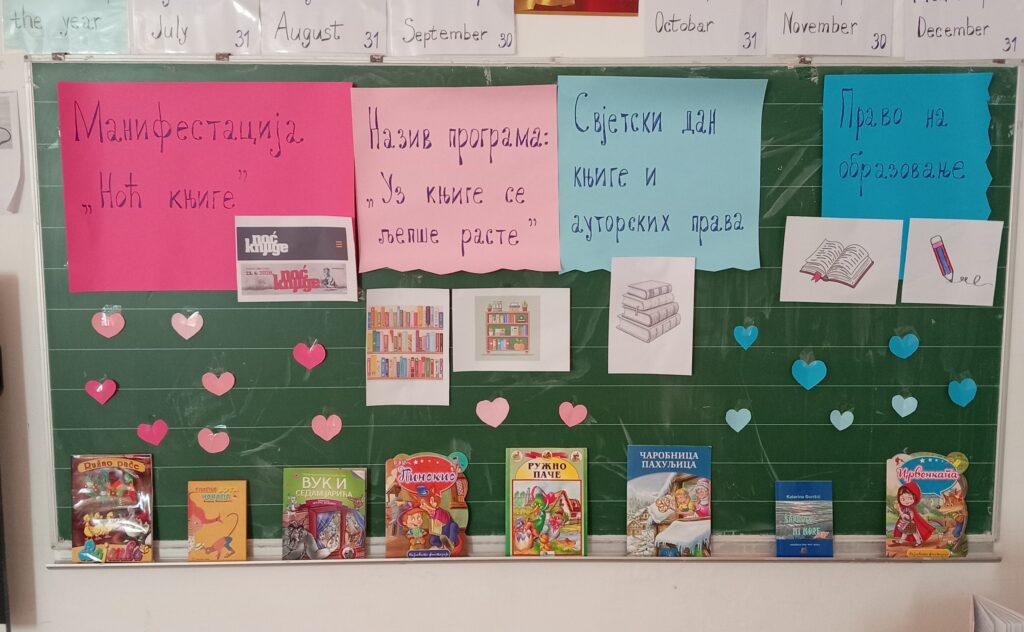 the year
July 31
August 31
September 30
Octobar 31
November 30
December 31
Манифестација
„Ноћ књиге”
Назив програма:
„Уз књиге се
љепше расте”
Свјетски дан
књиге и
ауторских права
Право на
образовање
noć
knjige
noć
knjige
Ružno pače
ВУК И
СЕДАМ ЈАРИЋА
Пинокио
РУЖНО
ПАЧЕ
ЧАРОБНИЦА
ПАХУЉИЦА
MORE
Црвенкапа